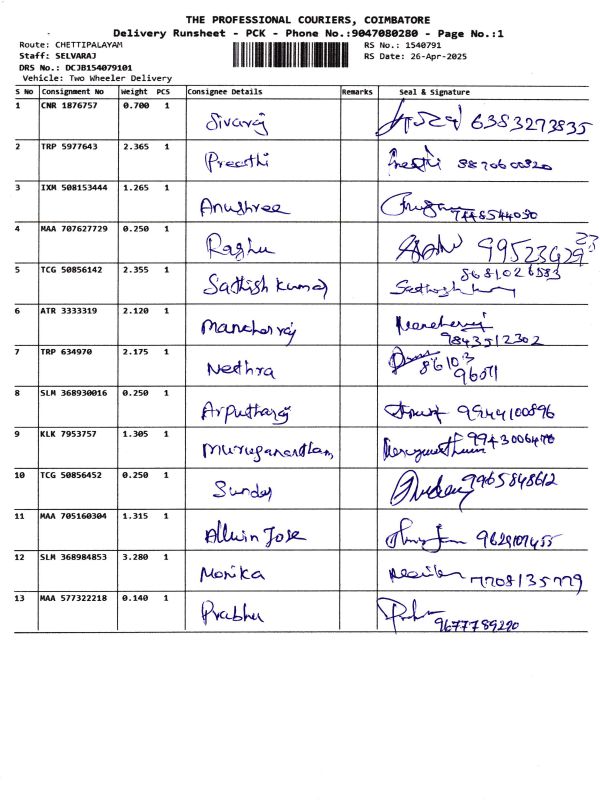 THE PROFESSIONAL COURIERS, COIMBATORE
Delivery Runsheet - PCK - Phone No.:9047080280 - Page No.:1
Route: CHETTIPALAYAM RS No.: 1540791
Staff: SELVARAJ RS Date: 26-Apr-2025
DRS No.: DCJB154079101
Vehicle: Two Wheeler Delivery
S No Consignment No Weight PCS Consignee Details Remarks Seal & Signature
1 CNR 1876757 0.700 1 Sivaraj 6383273835
2 TRP 5977643 2.365 1 Preethi Preethi 8870600820
3 IXM 508153444 1.265 1 Anushree 7448544030
4 MAA 707627729 0.250 1 Raghu
5 TCG 50856142 2.355 1 Sathish kumar 8681026583
6 ATR 3333319 2.120 1 Manoharaj 9843512302
7 TRP 634970 2.175 1 Nethra 86103 96071
8 SLM 368930016 0.250 1 Arputharaj 9944100896
9 KLK 7953757 1.305 1 Muruganantham 9943006470
10 TCG 50856452 0.250 1 Sunder 9965848612
11 MAA 705160304 1.315 1 Allwin Jose 9629107455
12 SLM 368984853 3.280 1 Monika 7708135779
13 MAA 577322218 0.140 1 Prabhu 9677789220